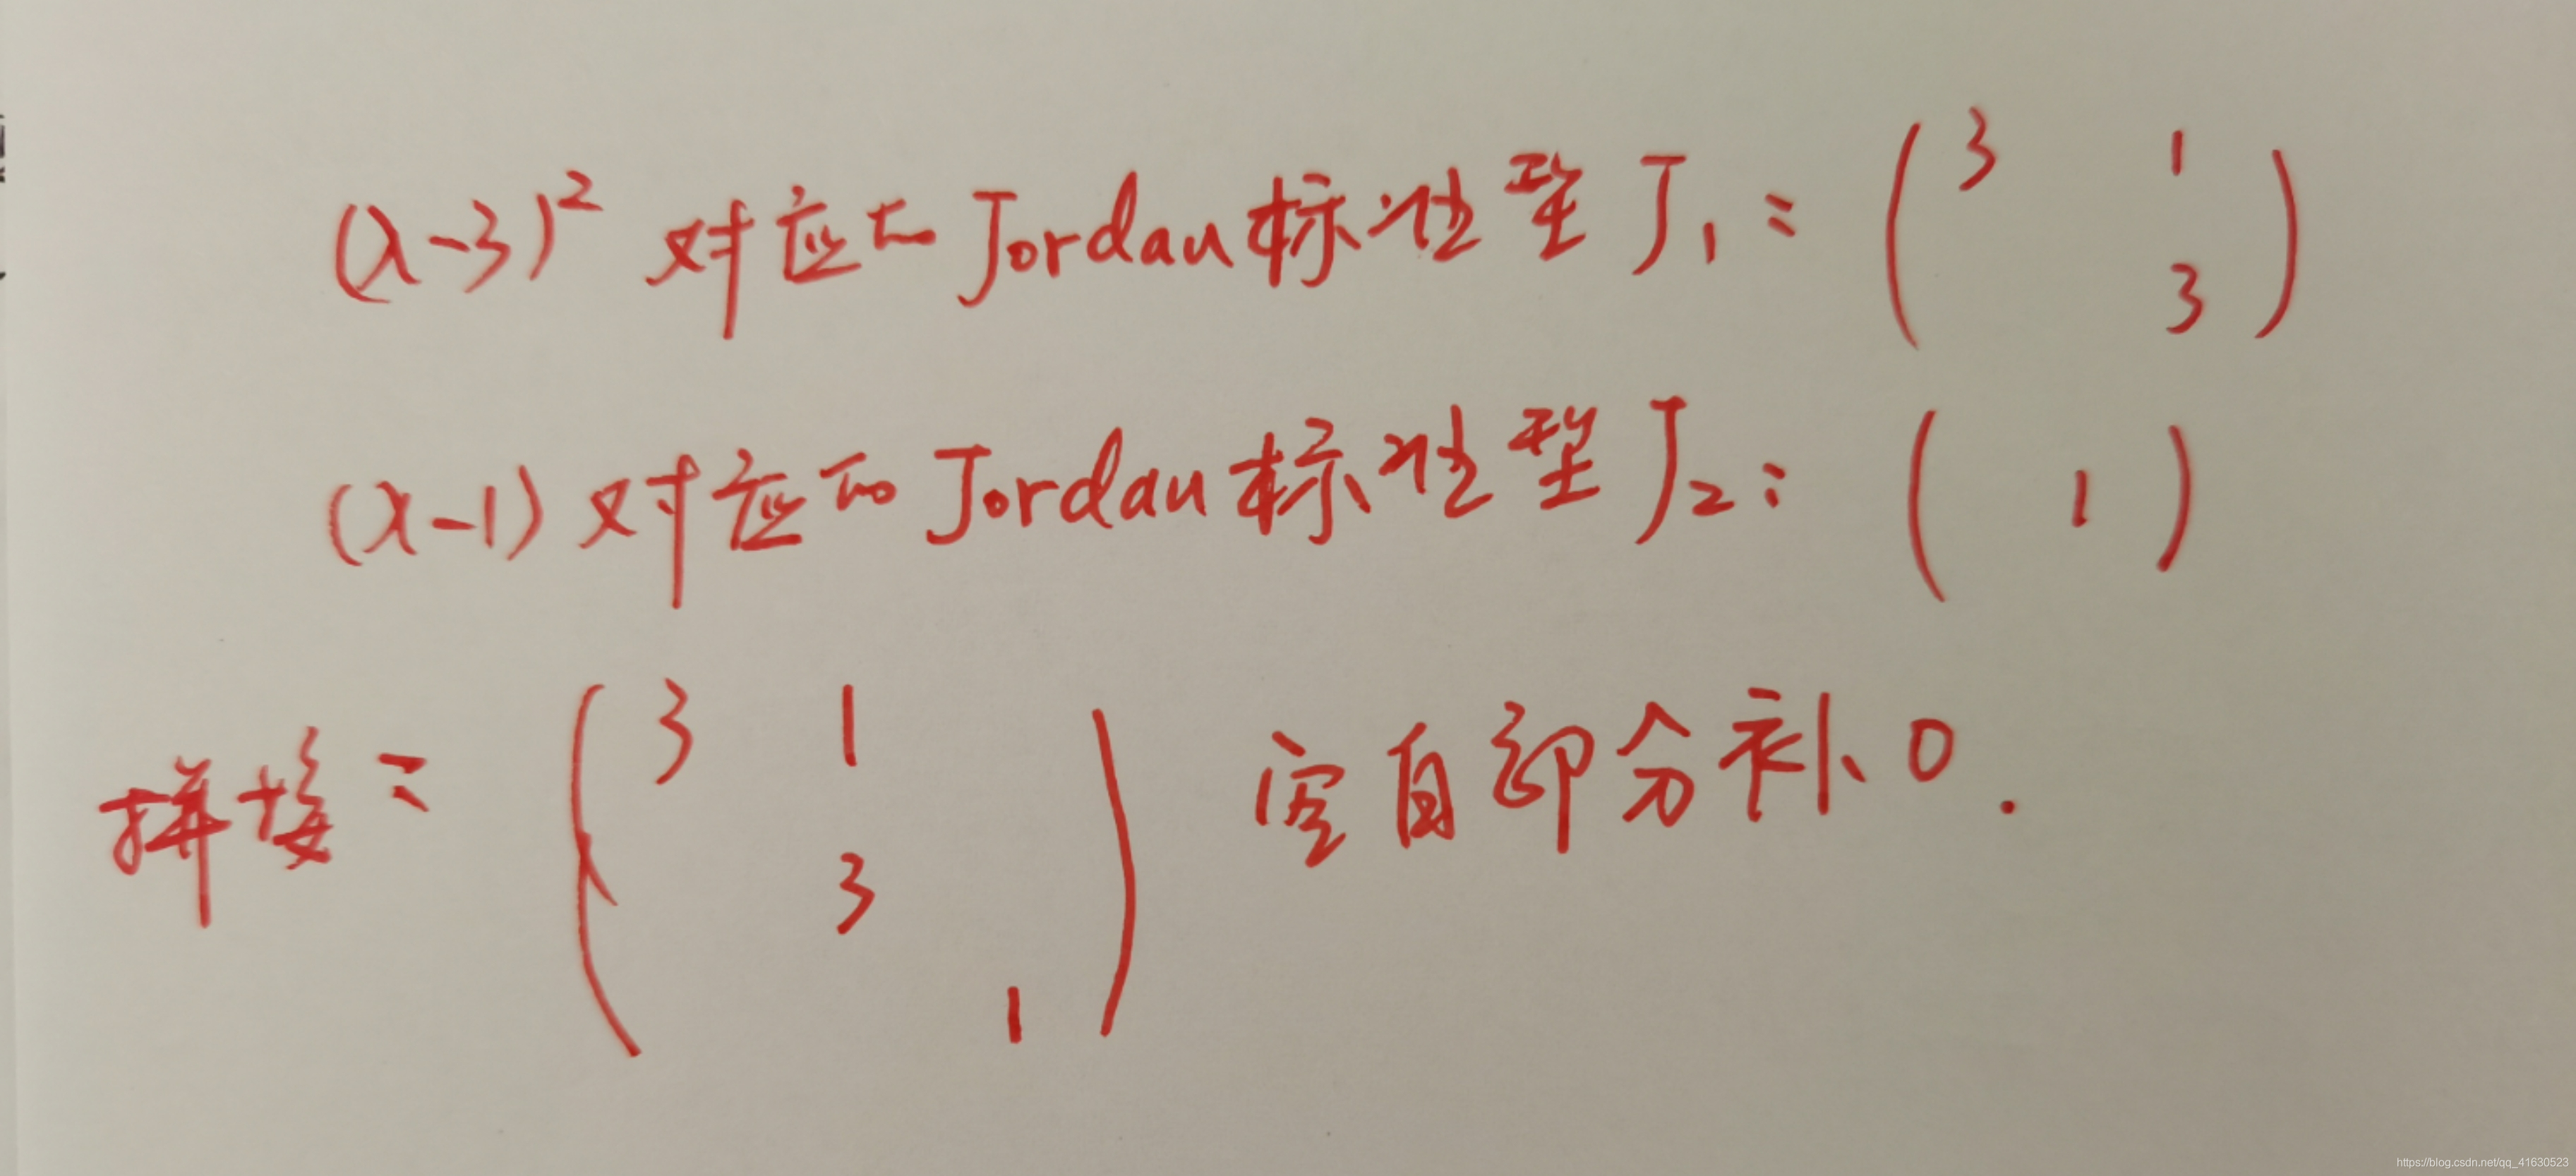 (λ-3)² 对应的Jordan标准型 J₁: ( 3 1
3 )
(λ-1) 对应的Jordan标准型 J₂: ( 1 )
拼接: ( 3 1
3
1 ) 空白部分补 0.
https://blog.csdn.net/qq_41630523